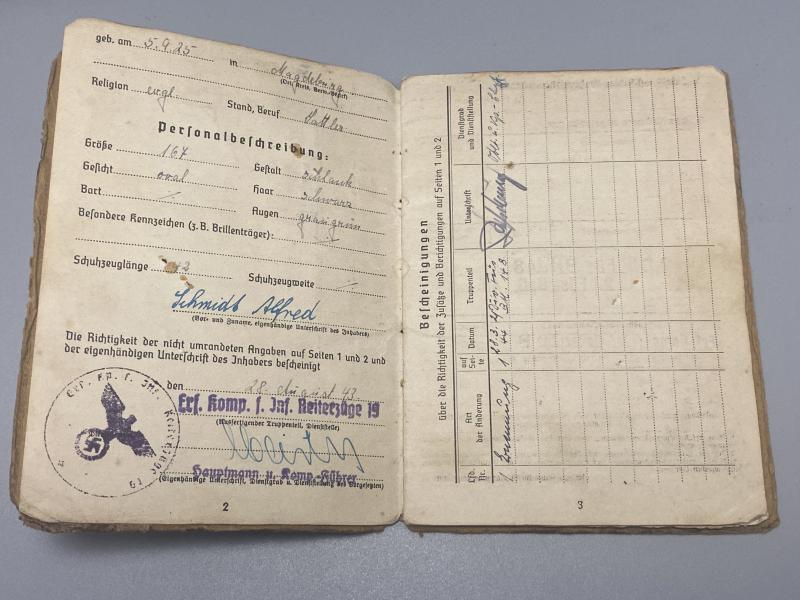 geb. am 5.9.25 in Magdeburg
(Ort, Kreis, Verw.-Bezirk)
Religion evgl. Stand, Beruf Sattler
Personalbeschreibung:
Größe 167 Gestalt schlank
Gesicht oval Haar schwarz
Bart Augen graugrün
Besondere Kennzeichen (z.B. Brillenträger):
Schuhzeuglänge 42 Schuhzeugweite
Schmidt Alfred
(Vor- und Zuname, eigenhändige Unterschrift des Inhabers)
Die Richtigkeit der nicht umrandeten Angaben auf Seiten 1 und 2 und
der eigenhändigen Unterschrift des Inhabers bescheinigt
den 28. August 43
Ers. Komp. f. Inf. Reiterzüge 19
(Ausfertigender Truppenteil, Dienststelle)
Hauptmann u. Komp.-Führer
(Eigenhändige Unterschrift, Dienstgrad u. Dienststellung des Vorgesetzten)
2
Bescheinigungen
über die Richtigkeit der Zusätze und Berichtigungen auf Seiten 1 und 2
Lfd. Nr.
Art der Änderung
auf Seite
Datum
Truppenteil
Unterschrift
Dienstgrad und Dienststellung
1 Ernennung 1 28.3.44
3